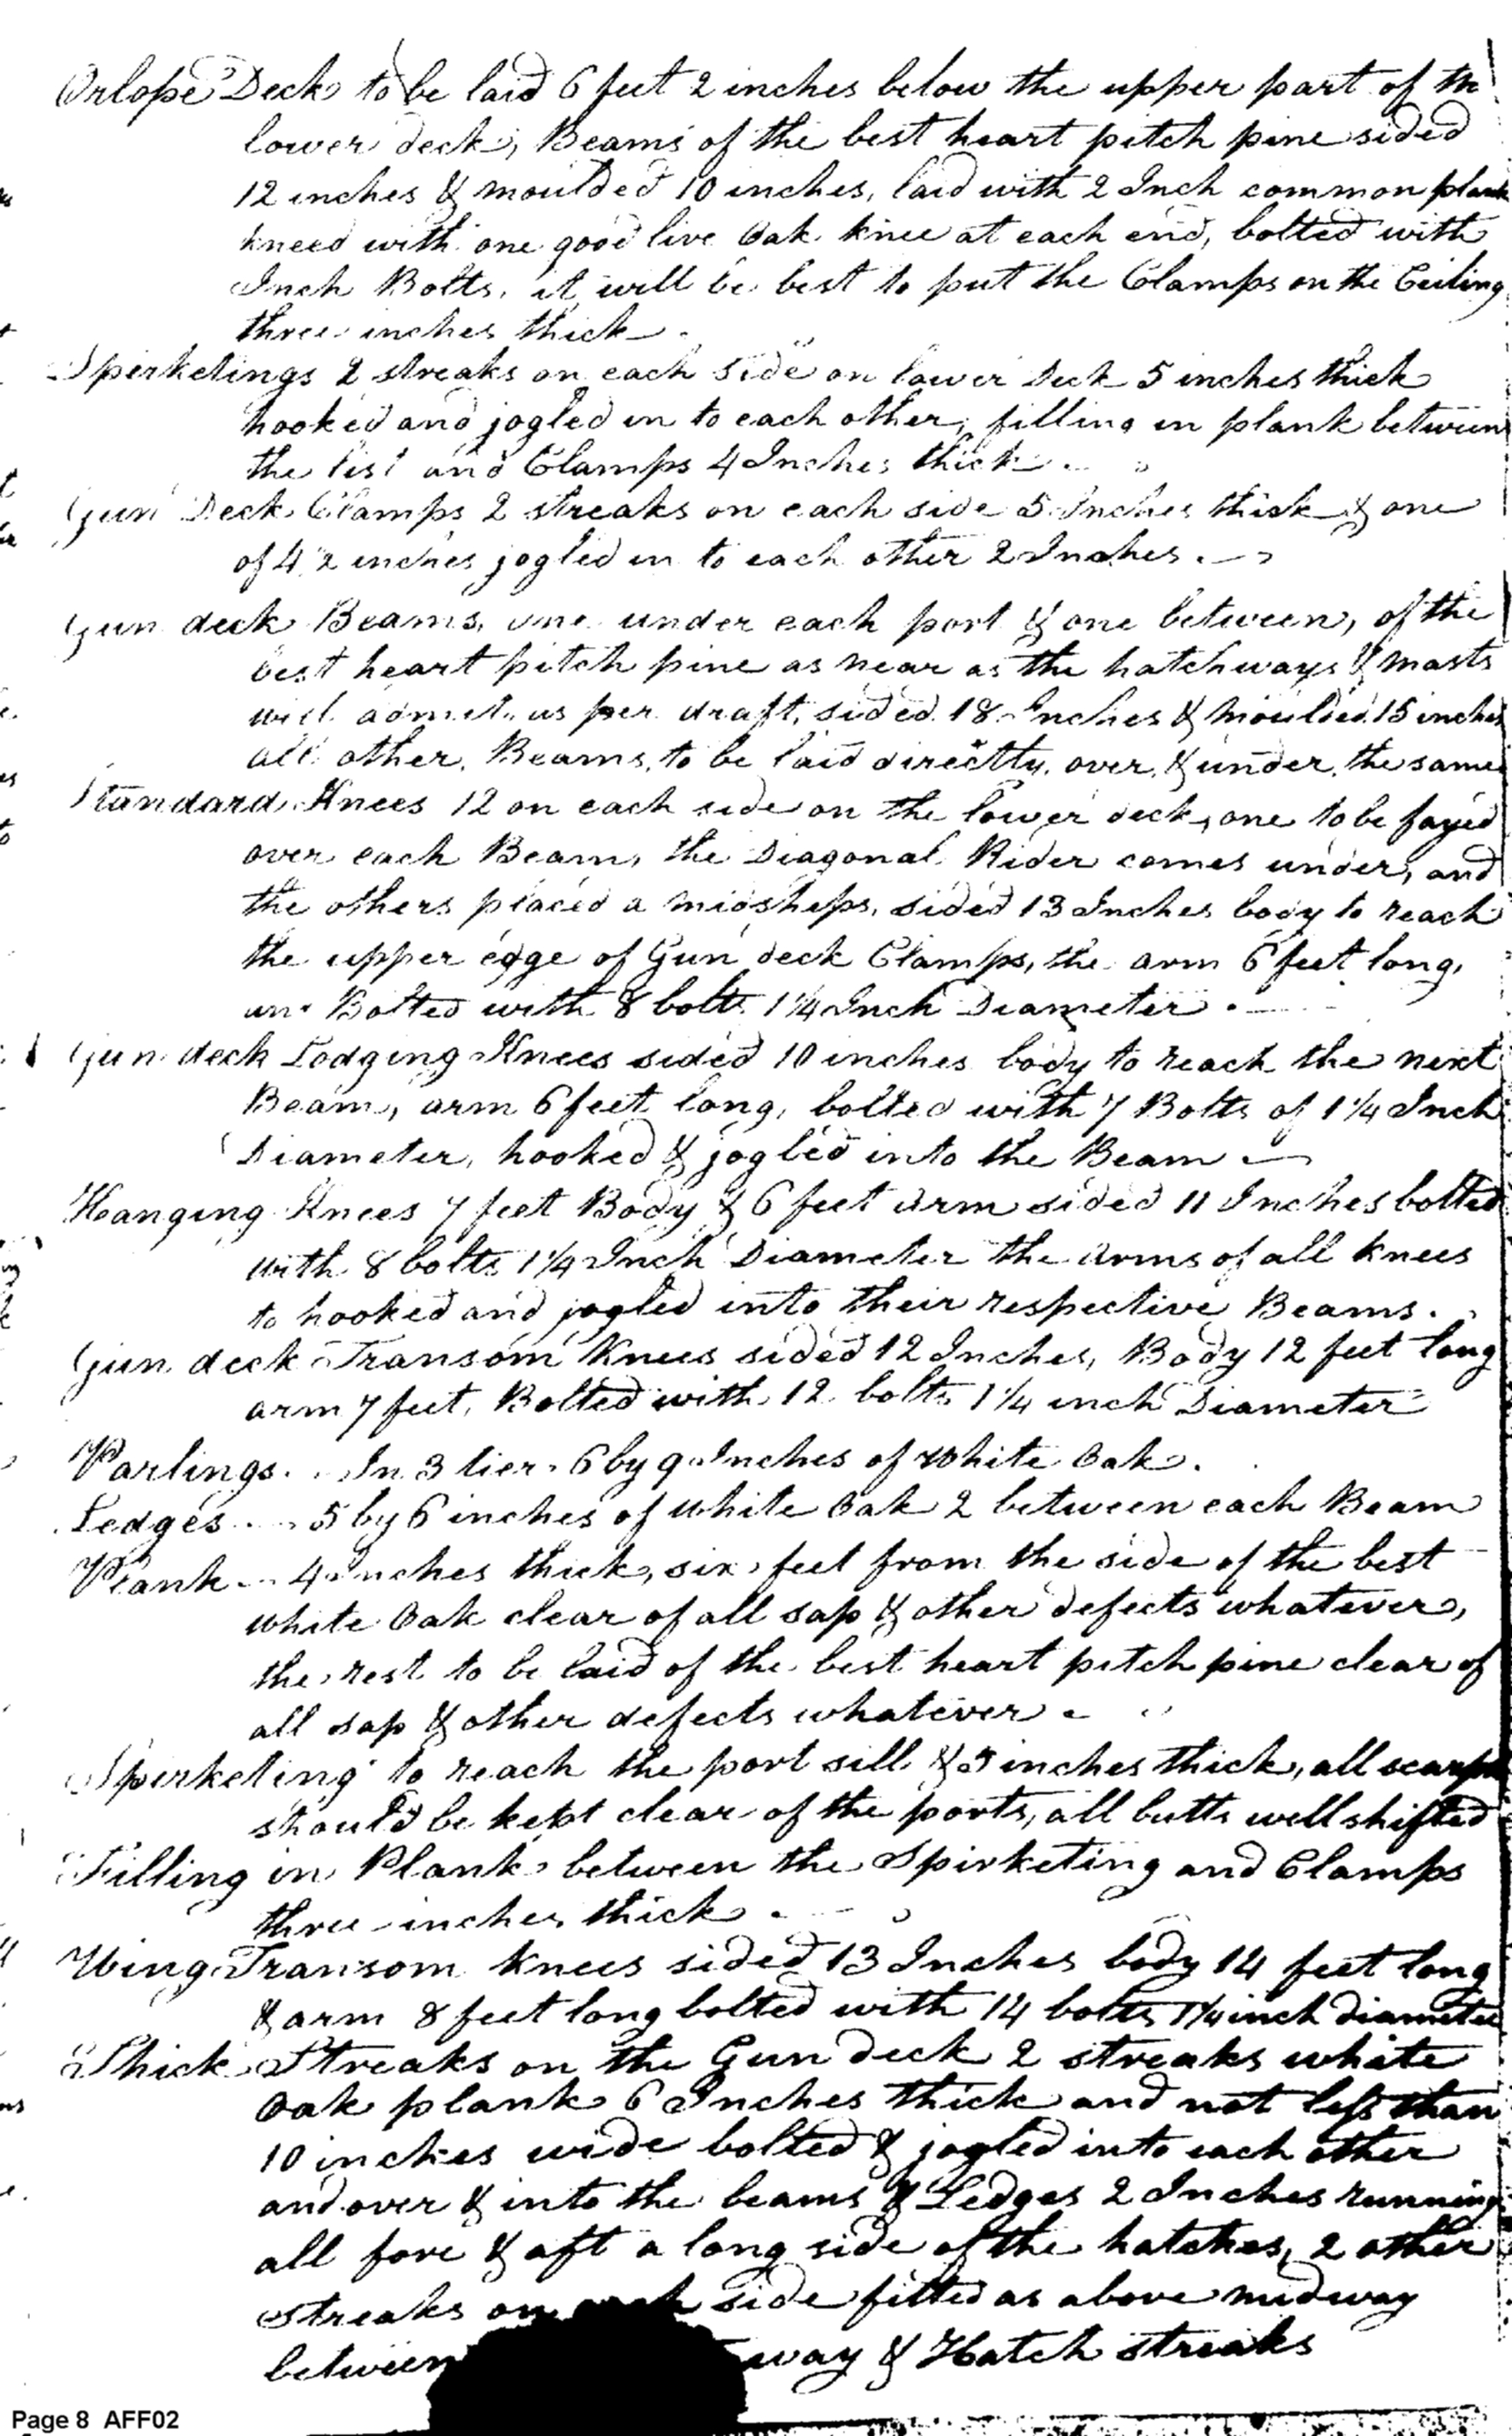 Orlope Deck to be laid 6 feet 2 inches below the upper part of the
lower deck, Beams of the best heart pitch pine sided
12 inches & moulded 10 inches, laid with 2 Inch common plank
kneed with one good live Oak knee at each end, bolted with
Inch Bolts, it will be best to put the Clamps on the Ceiling
three inches thick
Spirketings 2 streaks on each side on lower Deck 5 inches thick
hooked and jogled in to each other, filling in plank between
the list and Clamps 4 Inches thick.
Gun Deck Clamps 2 streaks on each side 5 Inches thick & one
of 4 1/2 inches jogled in to each other 2 Inches.
Gun deck Beams, one under each port & one between, of the
best heart pitch pine as near as the hatchways & masts
will admit, as per draft, sided 18 Inches & moulded 15 inches
all other Beams, to be laid directly over & under the same
Standard Knees 12 on each side on the lower deck, one to be fayed
over each Beam, the Diagonal Rider comes under, and
the others placed a midships, sided 13 Inches body to reach
the upper edge of Gun deck Clamps, the arm 6 feet long,
Bolted with 8 bolts 1 1/4 Inch Diameter.
Gun deck Lodging Knees sided 10 inches body to reach the next
Beam, arm 6 feet long, bolted with 7 Bolts of 1 1/4 Inch
Diameter, hooked & jogled into the Beam
Heanging Knees 7 feet Body & 6 feet arm sided 11 Inches bolted
with 8 bolts 1 1/4 Inch Diameter the arms of all knees
to hooked and jogled into their respective Beams.
Gun deck Transom Knees sided 12 Inches, Body 12 feet long
arm 7 feet, Bolted with 12 bolts 1 1/4 inch Diameter
Carlings. In 3 tier 6 by 9 Inches of White Oak.
Ledges 5 by 6 inches of white Oak 2 between each Beam
Plank 4 inches thick, six feet from the side of the best
white Oak clear of all sap & other defects whatever,
the rest to be laid of the best heart pitch pine clear of
all sap & other defects whatever
Spirketing to reach the port sill & 5 inches thick, all scarphs
should be kept clear of the ports, all butts well shifted
Filling in Plank between the Spirketing and Clamps
three inches thick
Wing Transom knees sided 13 Inches body 14 feet long
& arm 8 feet long bolted with 14 bolts 1 1/4 inch diameter
Thick Streaks on the Gun deck 2 streaks white
Oak plank 6 Inches thick and not less than
10 inches wide bolted & jogled into each other
and over & into the beams & Ledges 2 Inches running
all fore & aft a long side of the hatches, 2 other
streaks on each side fitted as above midway
between way & Hatch streaks
Page 8 AFF02